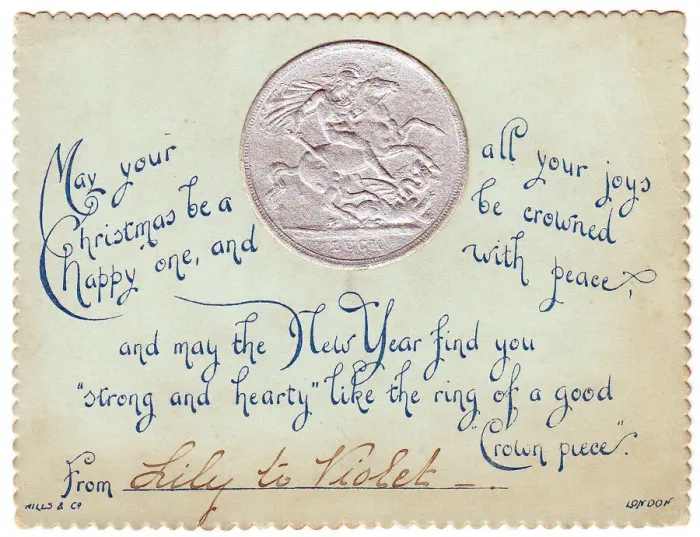 May your
Christmas be a
happy one, and
all your joys
be crowned
with peace;
and may the New Year find you
"strong and hearty" like the ring of a good
"Crown piece".
From Lily to Violet —.
HILLS & Cº
LONDON